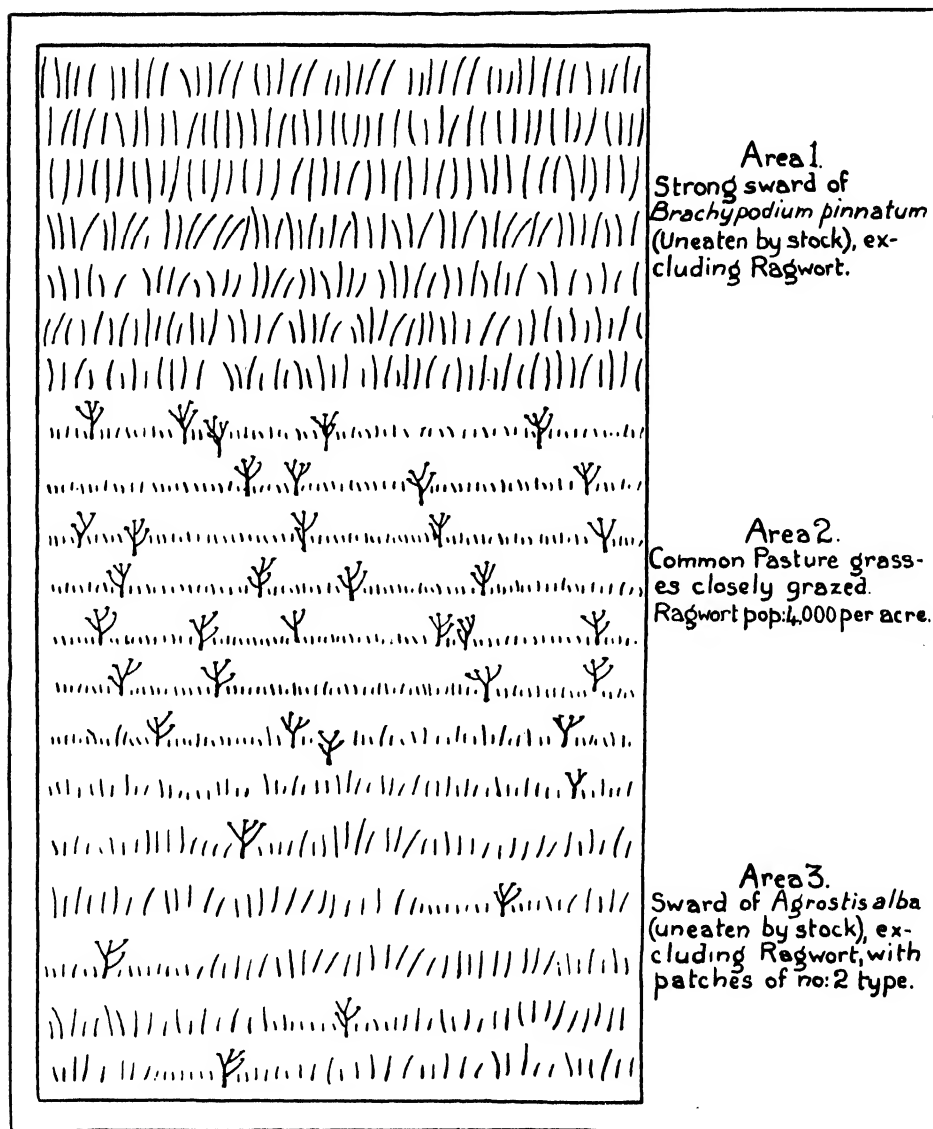 Area 1.
Strong sward of
Brachypodium pinnatum
(Uneaten by stock), ex-
cluding Ragwort.
Area 2.
Common Pasture grass-
es closely grazed.
Ragwort pop: 4,000 per acre.
Area 3.
Sward of Agrostis alba
(uneaten by stock), ex-
cluding Ragwort, with
patches of no: 2 type.